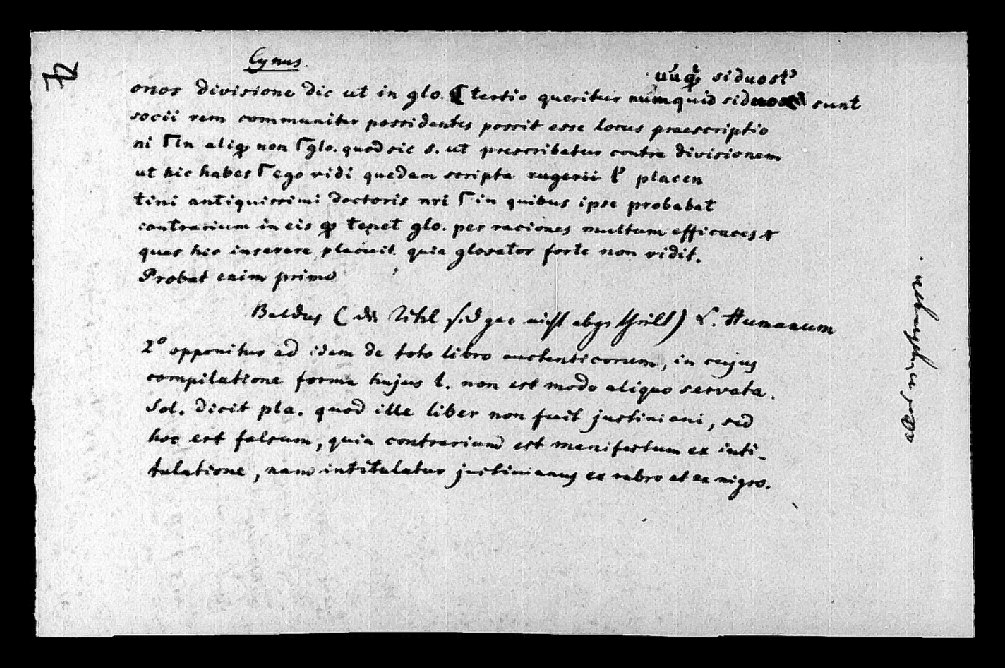 Cynus.
onos divisione dic ut in glo. tertio queritur numquid si duo sunt
socii rem communiter possidentes possit esse locus praescriptio
ni in aliq non glo. quod sic s. ut prescribatur contra divisionem
ut hic habes ego vidi quedam scripta rugerii placen
tini antiquissimi doctoris nri in quibus ipse probabat
contrarium in eis tenet glo. per raciones multum efficaces
quas hic inserere placuit quia glosator forte non vidit.
Probat enim primo
Baldus (die Titel sind gar nicht abgetheilt) L. Humanum
2° opponitur ad idem de toto libro autenticorum, in cujus
compilatione forma hujus l. non est modo aliquo servata.
Sol. dicit pla. quod ille liber non fuit justiniani, sed
hoc est falsum, quia contrarium est manifestum ex inti-
tulatione, nam intitulatur justinianus ex rubro et ex nigro.